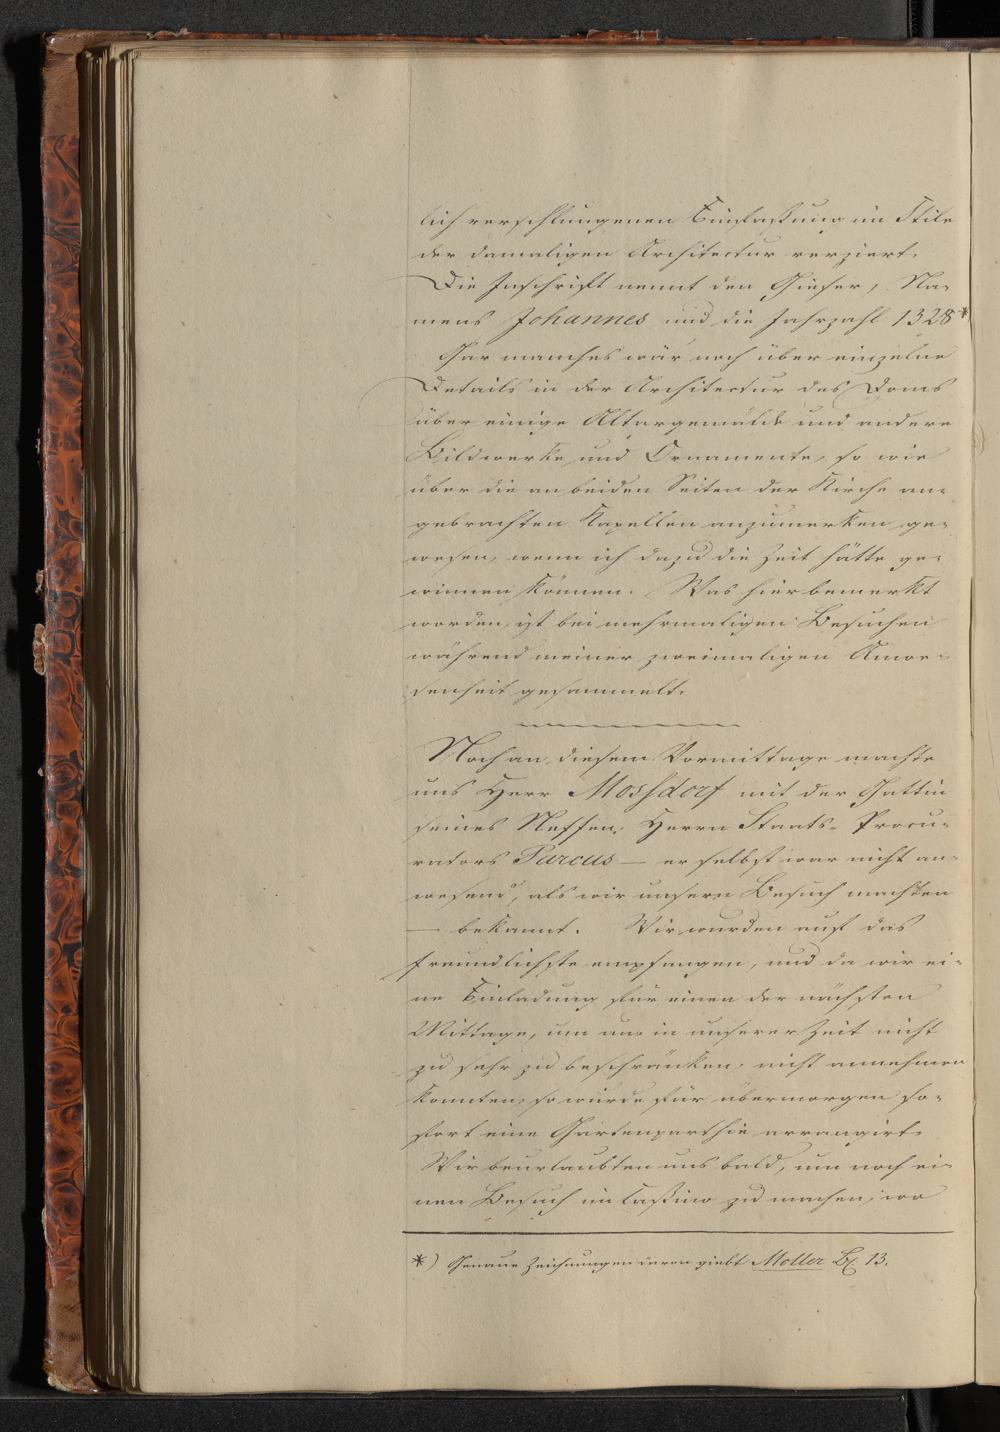 lich verschlungenen Einfaßung im Stile
der damaligen Architectur verziert.
Die Inschrift nennt den Gieser, Na-
mens Johannes und die Jahrzahl 1328 *
Gar manches wär noch über einzelne
Details in der Architectur des Doms
über einige Altargemälde und andere
Bildwerke und Ornamente, so wie
über die an beiden Seiten der Kirche an-
gebrachten Kapellen anzumerken ge-
wesen, wenn ich dazu die Zeit hätte ge-
winnen können. Was hier bemerkt
worden, ist bei mehrmaligen Besuchen
während meiner zweimaligen Anwe-
senheit gesammelt.
Noch an diesem Vormittage machte
uns Herr Mossdorf mit der Gattin
seines Neffen, Herrn Staats-Procu-
rators Parcus — er selbst war nicht an-
wesend, als wir unsern Besuch machten
— bekannt. Wir wurden auf das
freundlichste empfangen, und da wir ei-
ne Einladung für einen der nächsten
Mittage, um uns in unserer Zeit nicht
zu sehr zu beschränken, nicht annehmen
konnten, so wurde für übermorgen so-
fort eine Gartenparthie arrangirt.
Wir beurlaubten uns bald, um noch ei-
nen Besuch im Cassino zu machen, wo
*) Genaue Zeichnungen davon giebt Moller Bl. 13.